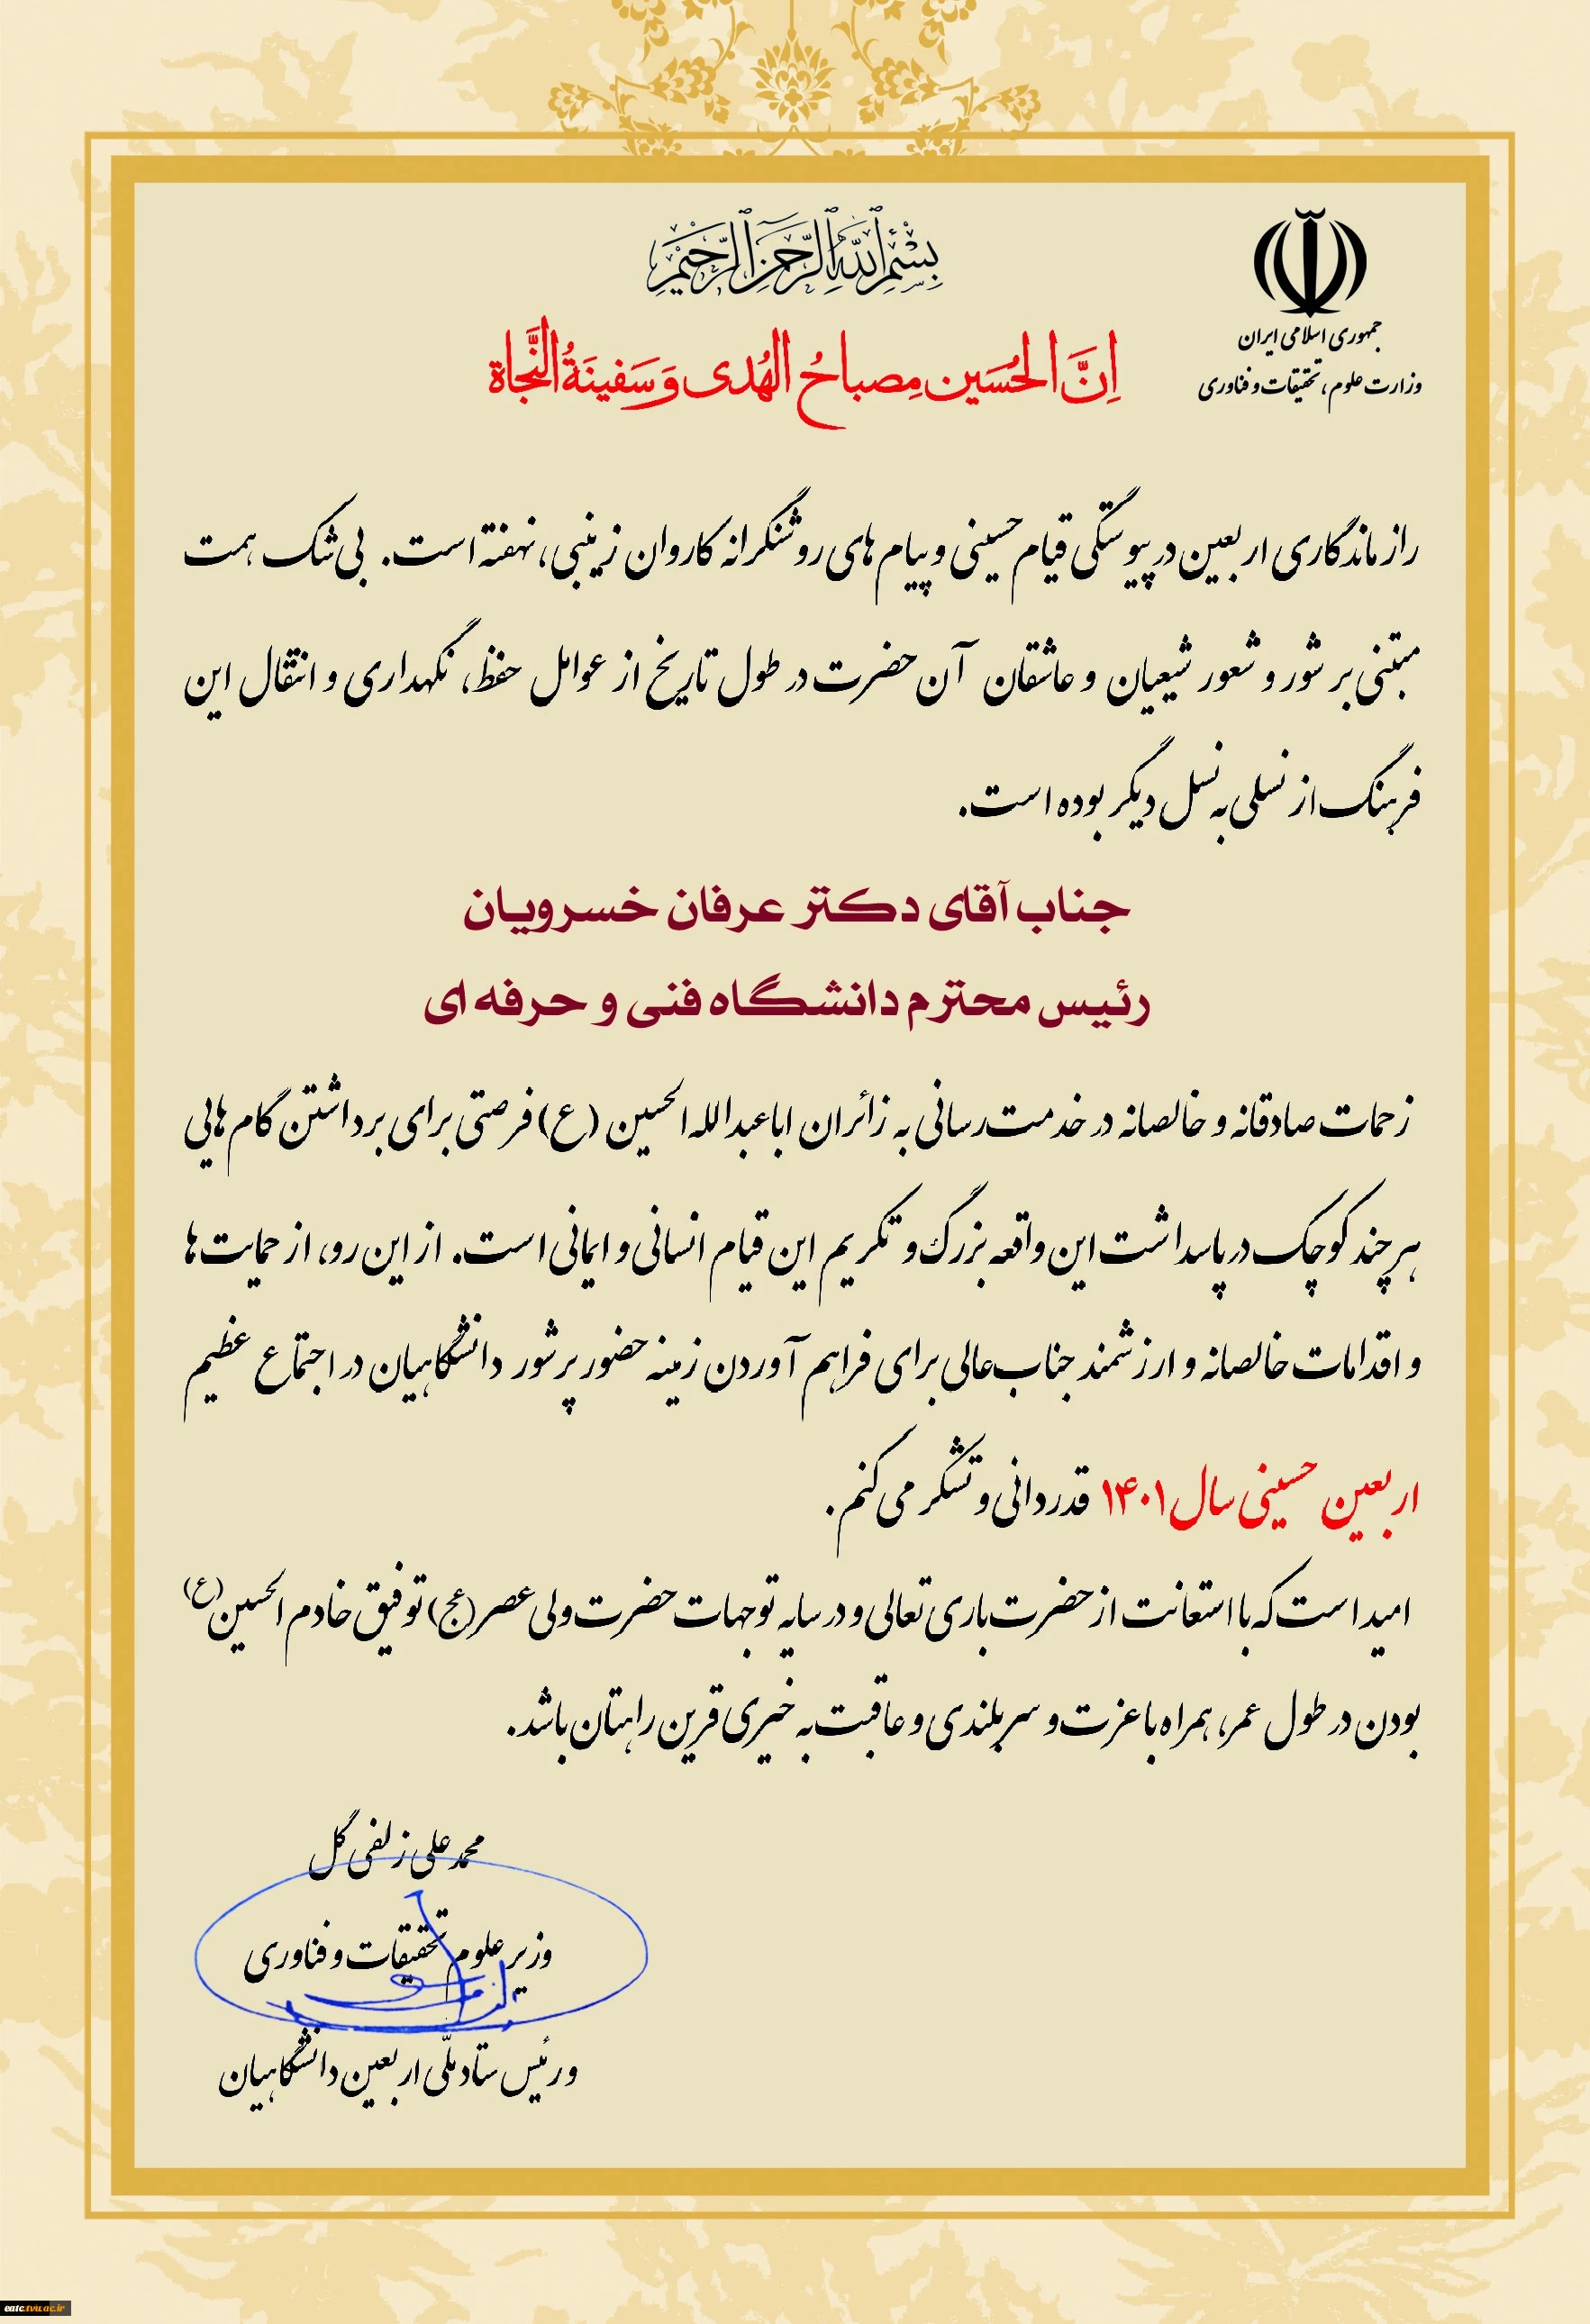 بِسْمِ اللّٰهِ الرَّحْمٰنِ الرَّحِیْمِ
جمهوری اسلامی ایران
وزارت علوم، تحقیقات و فناوری
اِنَّ الحُسَین مِصباحُ الهُدی وَ سَفینَةُ النَّجاة
راز ماندگاری اربعین در پیوستگی قیام حسینی و پیام های روشنگرانه کاروان زینبی، نهفته است. بی شک همت
مبتنی بر شور و شعور شیعیان و عاشقان آن حضرت در طول تاریخ از عوامل حفظ، نگهداری و انتقال این
فرهنگ از نسلی به نسل دیگر بوده است.
جناب آقای دکتر عرفان خسرویان
رئیس محترم دانشگاه فنی و حرفه ای
زحمات صادقانه و خالصانه در خدمت رسانی به زائران اباعبدالله الحسین (ع) فرصتی برای برداشتن گام هایی
هر چند کوچک در پاسداشت این واقعه بزرگ و تکریم این قیام انسانی و ایمانی است. از این رو، از حمایت ها
و اقدامات خالصانه و ارزشمند جناب عالی برای فراهم آوردن زمینه حضور پرشور دانشگاهیان در اجتماع عظیم
اربعین حسینی سال ۱۴۰۱ قدردانی و تشکر می کنم.
امید است که با استعانت از حضرت باری تعالی و در سایه توجهات حضرت ولی عصر (عج) توفیق خادم الحسین (ع)
بودن در طول عمر، همراه با عزت و سربلندی و عاقبت به خیری قرین راهتان باشد.
محمد علی زلفی گل
وزیر علوم تحقیقات و فناوری
و رئیس ستاد ملّی اربعین دانشگاهیان
eatc.tvu.ac.ir